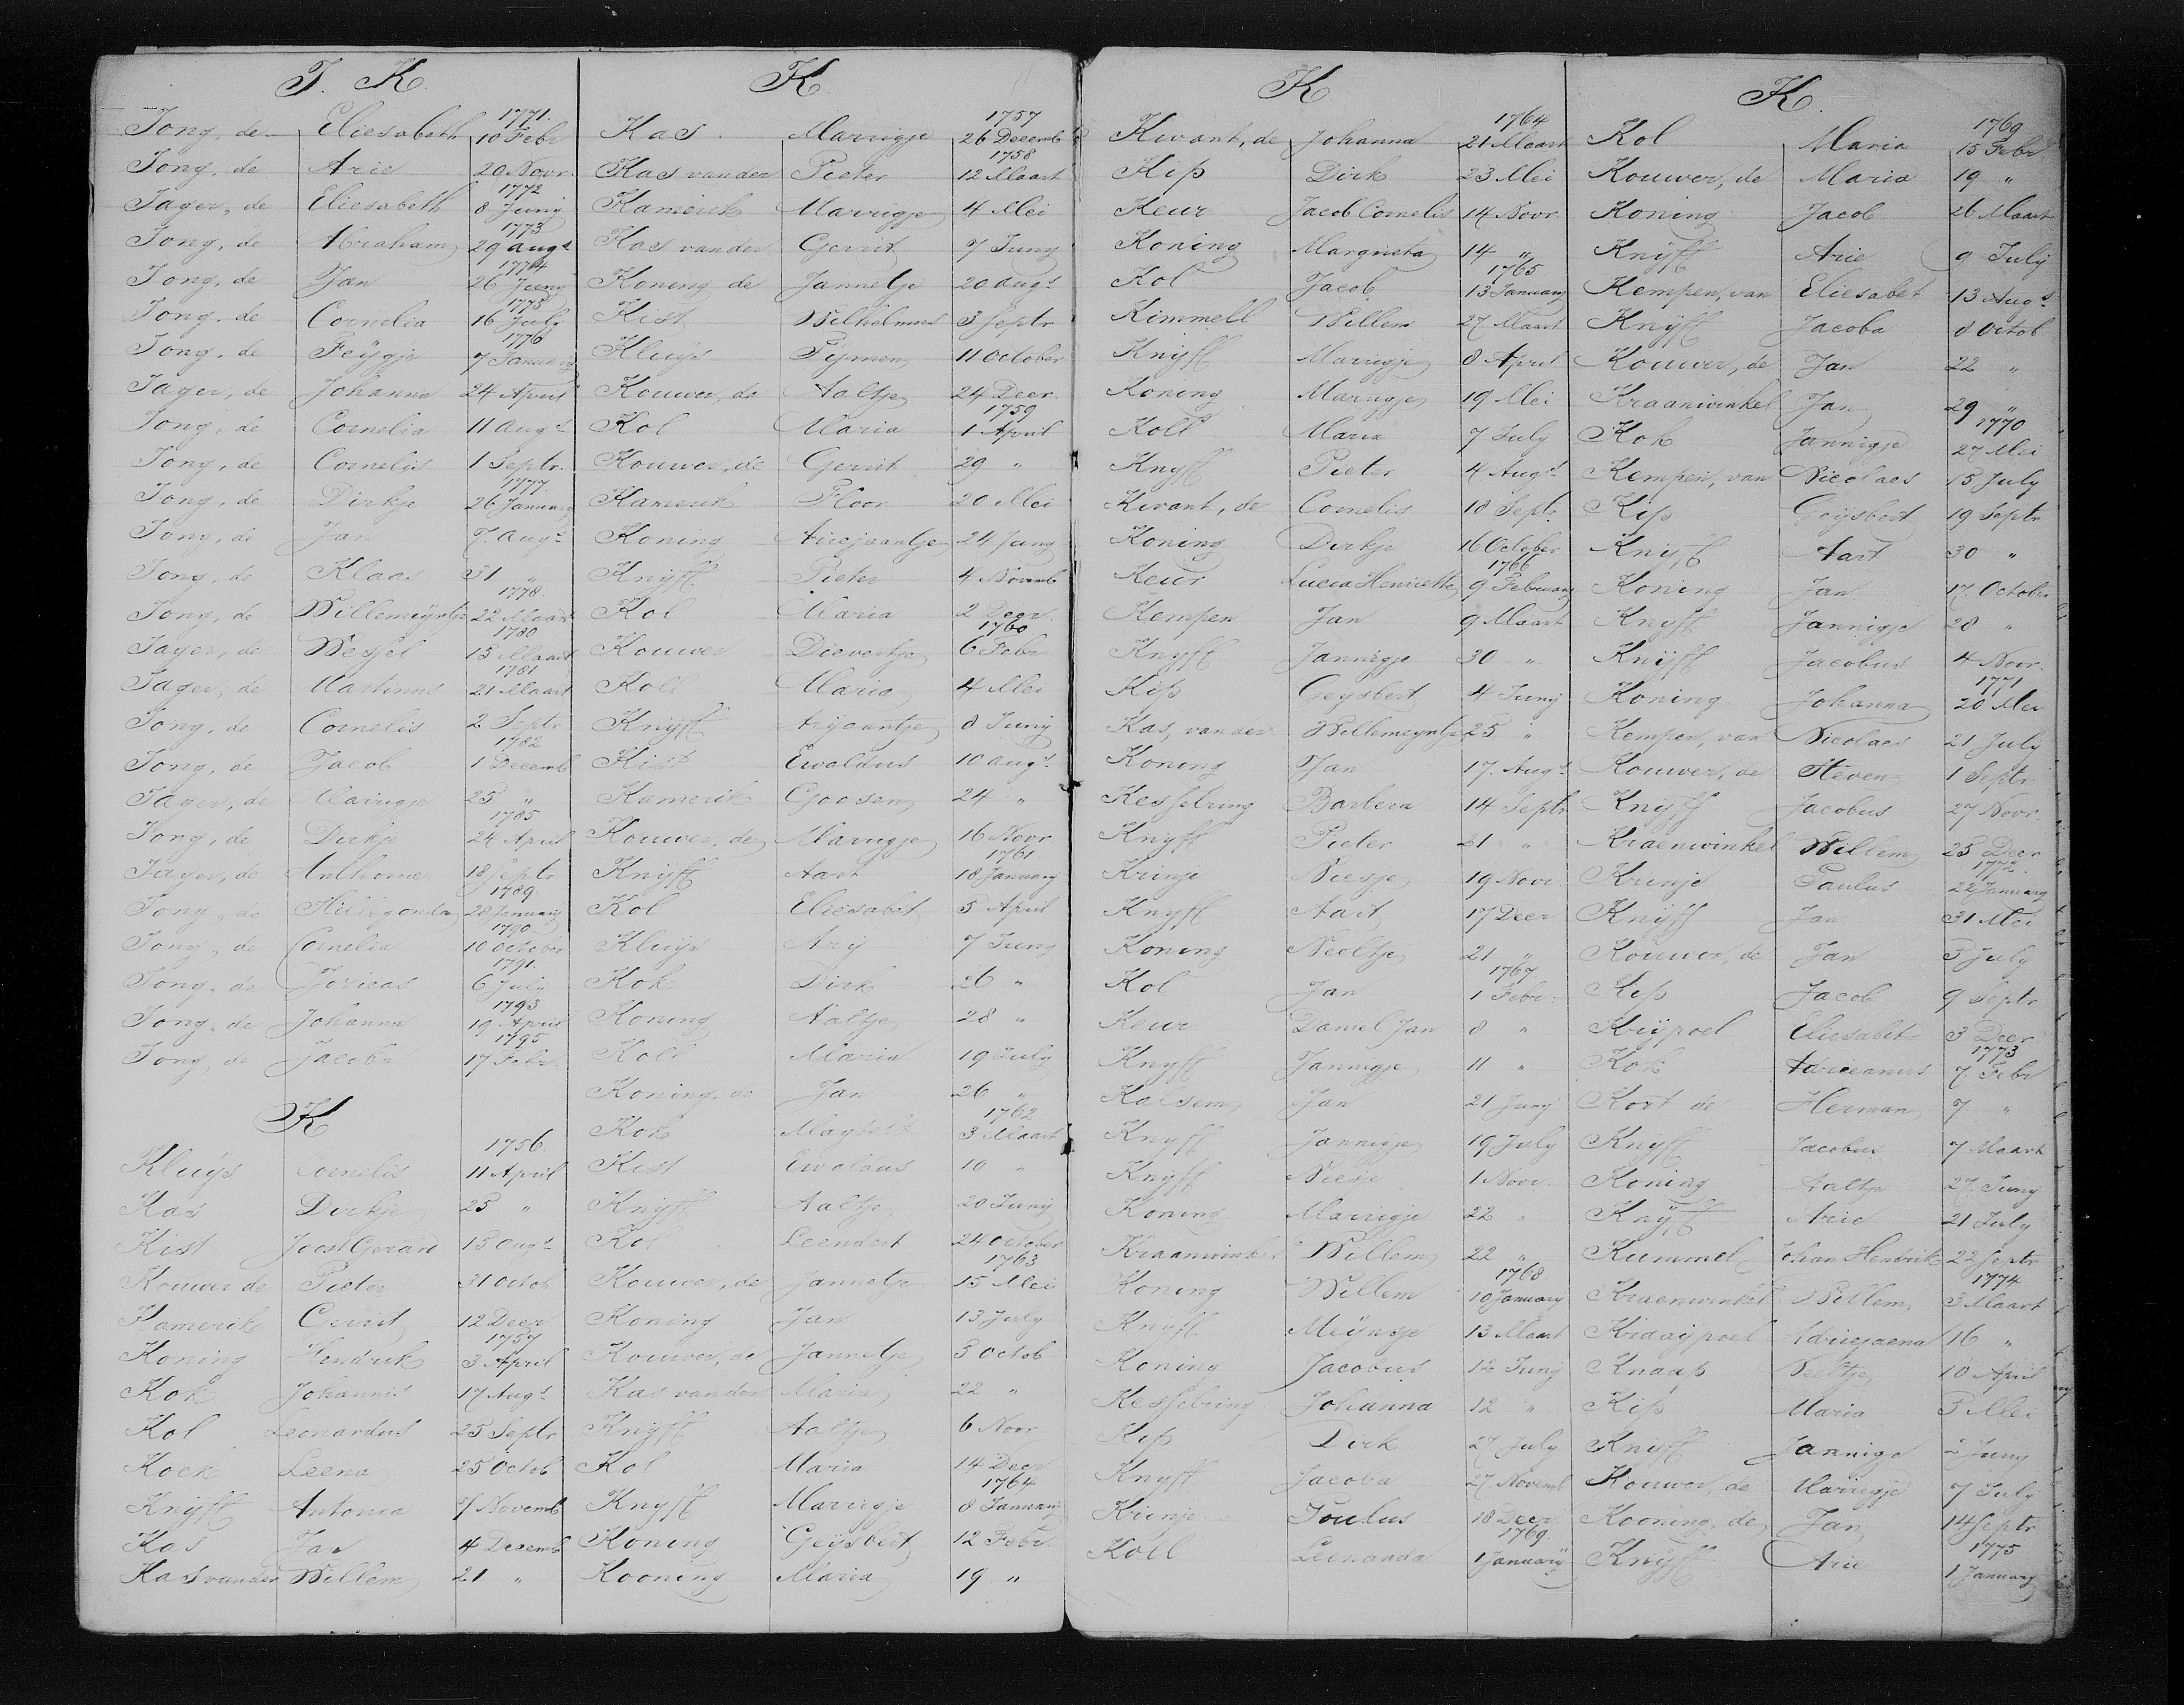 J. K.
1771.
Jong, de Eliesabeth 10 Febr
Jong, de Arie 20 Novr.
1772
Jager, de Eliesabeth 8 Junij
1773
Jong, de Abraham 29 Augs
1774
Jong, de Jan 26 Junij
1775
Jong, de Cornelia 16 July
1776
Jong, de Feÿgje 7 January
Jager, de Johanna 24 April
Jong, de Cornelia 11 Augs
Jong, de Cornelis 1 Septr.
1777.
Jong, de Dirkje 26 January
Jong, de Jan 7. Augs
Jong, de Klaas 31 "
1778.
Jong, de Willemeyntje 22 Maart
1780
Jager, de Wessel 15 Maart
1781
Jager, de Martinus 21 Maart
Jong, de Cornelis 2 Septr
1782
Jong, de Jacob 1 Decemb
Jager, de Marrigje 25 "
1785
Jong, de Dirkje 24 April
Jager, de Anthonie 18 Septr
1789.
Jong, de Hillegonda 28 January
1790
Jong, de Cornelia 10 October
1791.
Jong, de 6 July
1793
Jong, de Johanna 19 April
1795
Jong, de Jacoba 17 Febr.
K
1756.
Kluÿs Cornelis 11 April
Kas Dirkje 25 "
Kist Joost Gerard 15 Augs
Kouwer de Pieter 31 Octob
Kamerik Gerrit 12 Decr
1757
Koning Hendrik 3 April
Kok Johannis 17 Augs
Kol Leonardus 25 Septr
Kock Leena 25 Octob
Knÿff Antonia 7 Novemb
Kas Jan 4 Decemb
Kas vander Willem 21 "
K.
1757
Kas Marrigje 26 Decemb
1758
Kas van der Pieter 12 Maart
Kamerik Marrigje 4 Mei
Kas van der Gerrit 7 Juny
Koning de Jannetje 20 Augs
Kist Wilhelmus 3 Septr
Kluÿs Tijmen 11 October
Kouwer, de Aaltje 24 Decr.
1759
Kol Maria 1 April
Kouwer, de Gerrit 29 "
Kamerik Floor 20 Mei
Koning Ariejaantje 24 Juny
Knÿff Pieter 4 Novemb
Kol Maria 2 Decr.
1760
Kouwer Dievertje 6 Febr
Koll Maria 4 Mei
Knÿff Arijaantje 8 Junij
Kist Ewaldus 10 Augs.
Kamerik Goosen 24 "
Kouwer, de Marrigje 16 Novr
1761.
Knÿff Aart 18 January
Kol Eliesabet 5 April
Kluÿs Arij 7 Juny
Kok Dirk 26 "
Koning Aaltje 28 "
Koll Maria 19 July
Koning, de Jan 26 "
1762
Kok Magteld 3 Maart
Kist Ewaldus 10 "
Knÿff Aaltje 20 Junij
Kol Leendert 24 October
1763
Kouwer, de Jannetje 15 Mei
Koning Jan 13 July
Kouwer, de Jannetje 5 Octob
Kas van der Maria 22 "
Knÿff Aaltje 6 Novr
Kol Maria 14 Decr
1764
Knyff Marrigje 8 January
Koning Geÿsbert 12 Febr.
Kooning Maria 19 "
K
1764
Kwant, de Johanna 21 Maart
Kip Dirk 23 Mei
Keur Jacob Cornelis 14 Novr
Koning Margrieta 14 "
1765
Kol Jacob 13 January
Kimmell Willem 27 Maart
Knÿff Marrigje 8 April
Koning Marrigje 19 Mei
Koll Maria 7 July
Knyff Pieter 4 Augs
Kwant, de Cornelis 18 Septr
Koning Dirkje 16 October
1766
Keur Lucia Henriette 9 February
Kempen Jan 9 Maart
Knyff Jannigje 30 "
Kip Geysbert 4 Junij
Kas, van der Willemeyntje 25 "
Koning Jan 17. Augs
Kesselring Barbera 14 Septr
Knyff Pieter 21 "
Krinje Niesje 19 Novr
Knyff Aart 17 Decr
Koning Neeltje 21 "
1767
Kol Jan 1 Febr.
Keur Daniel Jan 8 "
Knyff Jannigje 11 "
Kalsem Jan 21 Junij
Knyff Jannigje 19 July
Knyff Niesje 1 Novr
Koning Marrigje 22 "
Kraanwinkel Willem 22 "
1768
Koning Willem 10 January
Knyff Meÿnsje 13 Maart
Koning Jacobus 12 Junij
Kesselring Johanna 12 "
Kip Dirk 27 July
Knyff Jacoba 27 Novemb
Krinje Poulus 18 Decr
1769.
Koll Leenarda 1 Januarÿ
K.
1769
Kol Maria 15 Febr
Kouwer, de Maria 19 "
Koning Jacob 26 Maart
Knÿff Arie 9 July
Kempen, van Eliesabet 13 Augs
Knÿff Jacoba 8 Octob
Kouwer, de Jan 22 "
Kraanwinkel Jan 29 "
1770
Kok Jannigje 27 Mei
Kempen, van Nicolaes 15 July
Kip Goÿsbert 19 Septr
Knyff Aart 30 "
Koning Jan 17. October
Knyff Jannigje 28 "
Knÿff Jacobus 4 Novr.
1771
Koning Johanna 20 Mei
Kempen, van Nicolaes 21 July
Kouwer, de Steven 1 Septr
Knÿff Jacobus 27 Novr
Kraenwinkel Willem 25 Decr
1772.
Krinje Paulus 22 January
Knÿff Jan 31 Mei
Kouwer, de Jan 5 July
Kip Jacob 9 Septr
Kuÿpoel Eliesabet 3 Decr
1773
Kok Adrieanus 7 Febr
Kort de Herman 7 "
Knyff Jacobus 7 Maart
Koning Aaltje 27. Juny
Knÿff Arie 21 July
Kummel Johan Hendrik 22 Septr
1774
Kraenwinkel Willem 3 Maart
Kraaÿpoel Adriejaena 16 "
Knaap Neeltje 10 April
Kip Maria 5 Mei
Knyff Jannige 2 Juny
Kouwer, de Marrigje 7 July
Kooning, de Jan 14 Septr
1775
Knÿff Arie 1 January